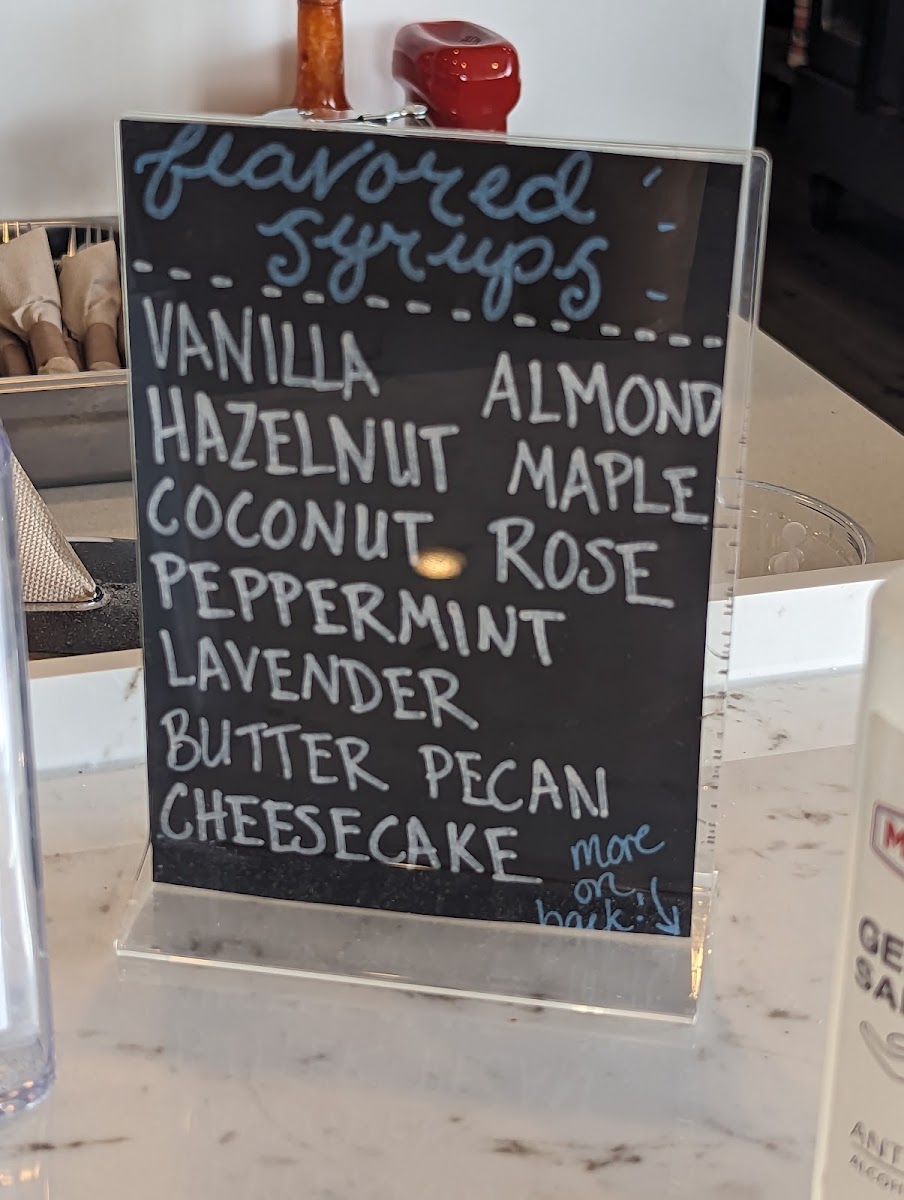 flavored
syrups
VANILLA
HAZELNUT
COCONUT
PEPPERMINT
LAVENDER
BUTTER PECAN
CHEESECAKE
ALMOND
MAPLE
ROSE
more
on
back!
GE
SA
ANT